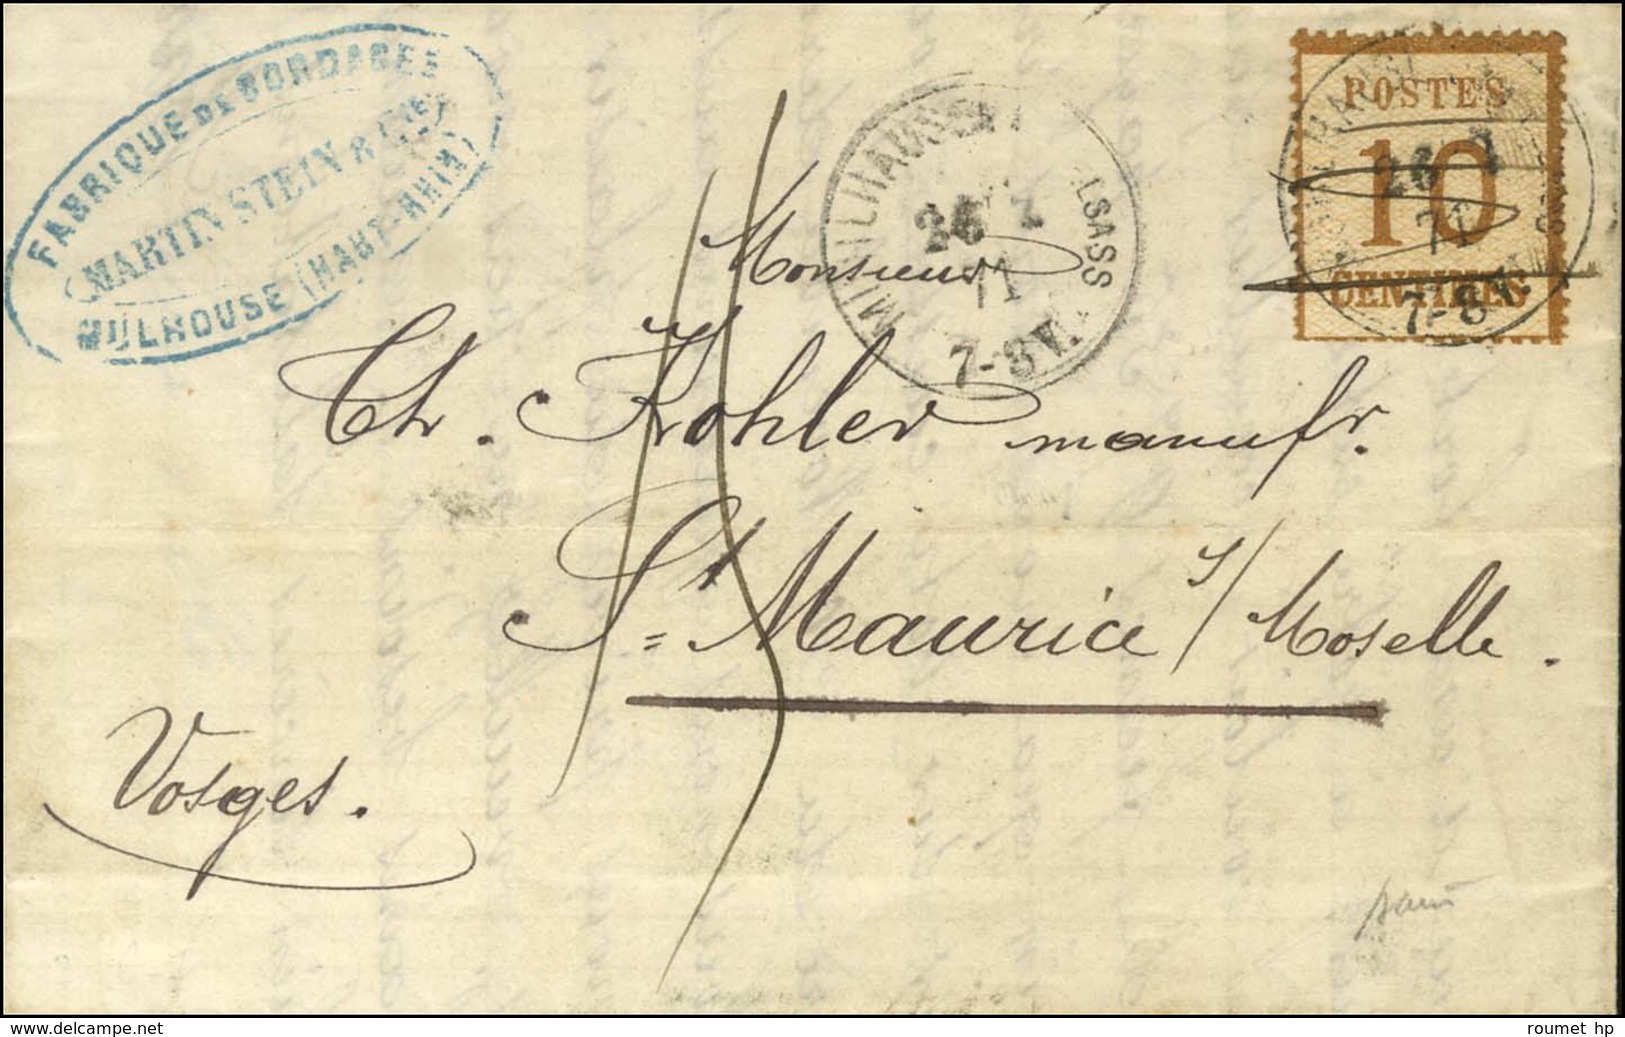 FABRIQUE DE BORDAGES
MARTIN STEIN & CIE
MULHOUSE (HAUT-RHIN)
MÜLHAUSEN I ELSASS
26 7
71
7-8 V.
POSTES
10
CENTIMES
26 7
71
7-8 V.
Monsieur
Ch. Kohler manufr.
St Maurice s/ Moselle.
Vosges.
www.delcampe.net
roumet hp